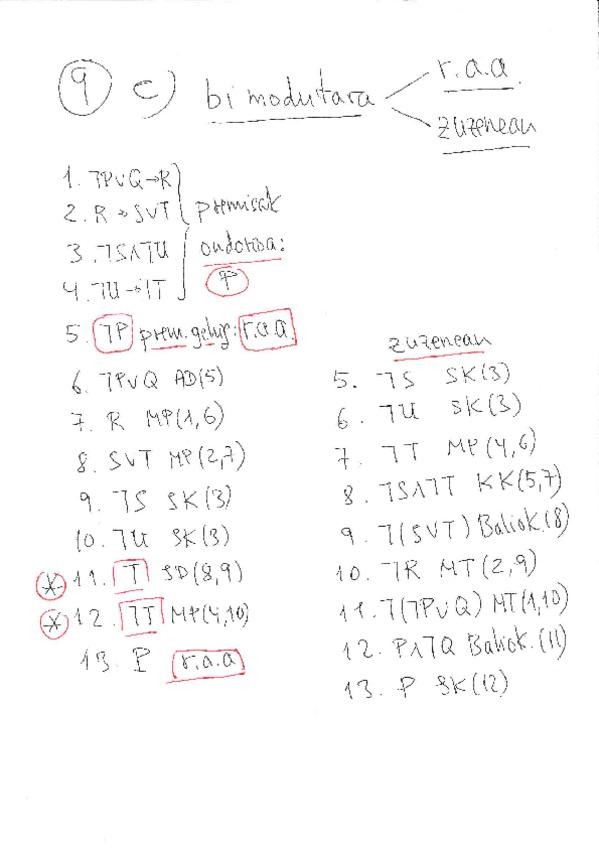 9 c) bi modutara
r.a.a.
zuzenean
1. ¬P∨Q→R
2. R→S∨T
premisak
3. ¬S∧¬U
4. ¬U→¬T
ondorioa:
P
5. ¬P prem. gehig: r.a.a.
6. ¬P∨Q AD(5)
7. R MP(1,6)
8. S∨T MP(2,7)
9. ¬S SK(3)
10. ¬U SK(3)
* 11. T SD(8,9)
* 12. ¬T MP(4,10)
13. P r.a.a
zuzenean
5. ¬S SK(3)
6. ¬U SK(3)
7. ¬T MP(4,6)
8. ¬S∧¬T KK(5,7)
9. ¬(S∨T) Baliok.(8)
10. ¬R MT(2,9)
11. ¬(¬P∨Q) MT(1,10)
12. P∧¬Q Baliok.(11)
13. P SK(12)